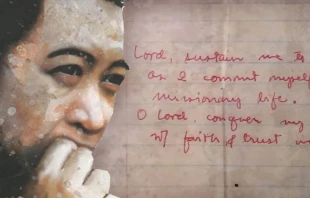 Lord, sustain me
as I commit myself
missioning life.
O Lord, conquer my
w/ faith & trust